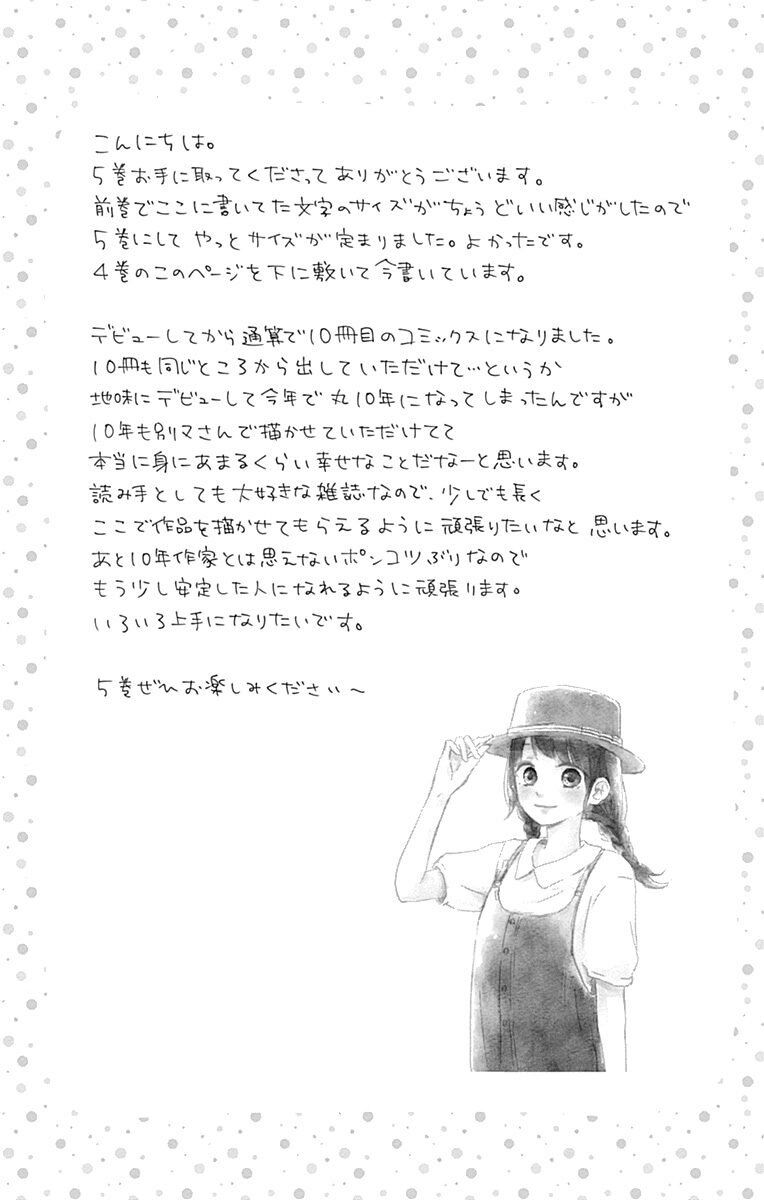 こんにちは。
5巻お手に取ってくださってありがとうございます。
前巻でここに書いてた文字のサイズがちょうどいい感じがしたので
5巻にして やっとサイズが定まりました。よかったです。
4巻のこのページを下に敷いて今書いています。
デビューしてから通算で10冊目のコミックスになりました。
10冊も同じところから出していただけて…というか
地味にデビューして今年で丸10年になってしまったんですが
10年も別マさんで描かせていただけてて
本当に身にあまるくらい幸せなことだなーと思います。
読み手としても大好きな雑誌なので、少しでも長く
ここで作品を描かせてもらえるように頑張りたいなと 思います。
あと10年作家とは思えないポンコツぶりなので
もう少し安定した人になれるように頑張ります。
いろいろ上手になりたいです。
5巻ぜひお楽しみください〜